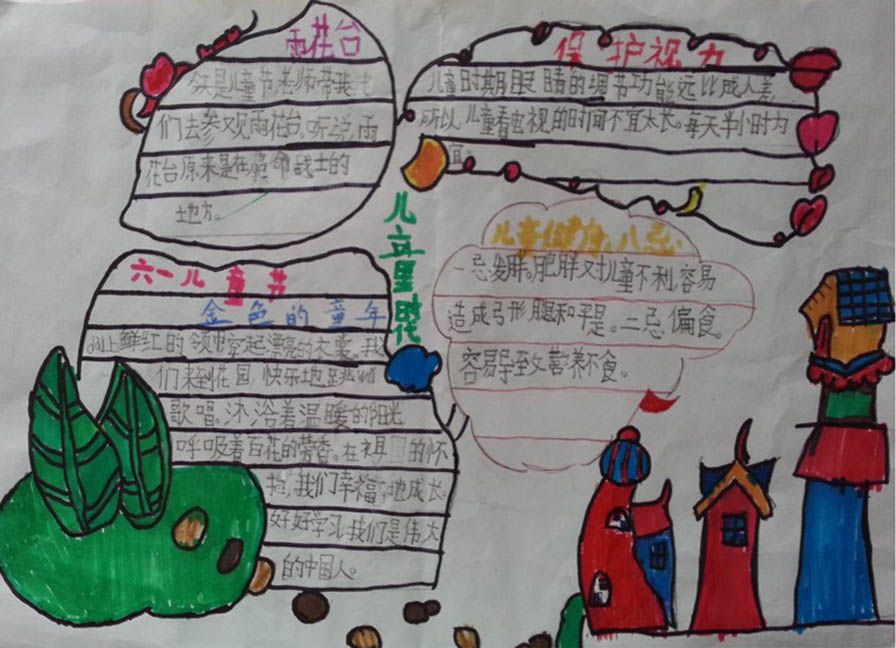 雨花台
今天是儿童节,老师带我
们去参观雨花台。听说雨
花台原来是在革命战士的
土地方。
保护视力
儿童时期眼睛的调节功能远比成人差,
所以儿童看电视的时间不宜太长。每天半小时为
宜。
儿童健康八忌:
一忌发胖。肥胖对儿童不利,容易
造成弓形腿和平足。二忌偏食。
容易导致营养不食。
儿童
六一儿童节
金色的童年
上鲜红的领巾穿起漂亮的衣裳。我
们来到花园,快乐地跳
歌唱。沐浴着温暖的阳光
呼吸着百花的芳香。在祖 的怀
抱,我们幸福地成长。
好好学习,我们是伟大
的中国人。